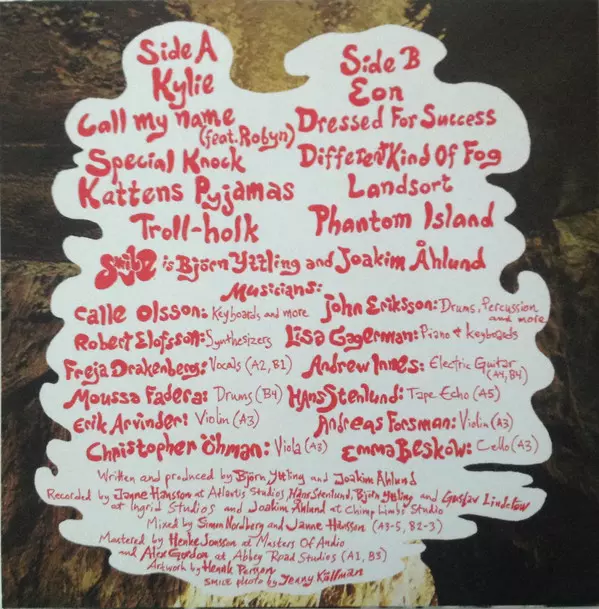 Side A
Kylie
Call my name
(feat. Robyn)
Special Knock
Kattens Pyjamas
Troll-holk
Side B
Eon
Dressed For Success
Different Kind Of Fog
Landsort
Phantom Island
Smile is Björn Yttling and Joakim Åhlund
Musicians:
Calle Olsson: Keyboards and more
John Eriksson: Drums, Percussion and more
Robert Elofsson: Synthesizers
Lisa Gagerman: Piano & Keyboards
Freja Drakenberg: Vocals (A2, B1)
Andrew Innes: Electric Guitar (A4, B4)
Moussa Fadera: Drums (B4)
Hans Stenlund: Tape Echo (A5)
Erik Arvinder: Violin (A3)
Andreas Forsman: Violin (A3)
Christopher Öhman: Viola (A3)
Emma Beskow: Cello (A3)
Written and produced by Björn Yttling and Joakim Åhlund
Recorded by Janne Hansson at Atlantis Studios, Hans Stenlund, Björn Yttling and Gustav Lindelöw
at Ingrid Studios and Joakim Åhlund at Chimp Limbs Studio
Mixed by Simon Nordberg and Janne Hansson (A3-5, B2-3)
Mastered by Henke Jonsson at Masters Of Audio
and Alex Gordon at Abbey Road Studios (A1, B5)
Artwork by Henrik Persson
SMILE photo by Jenny Källman